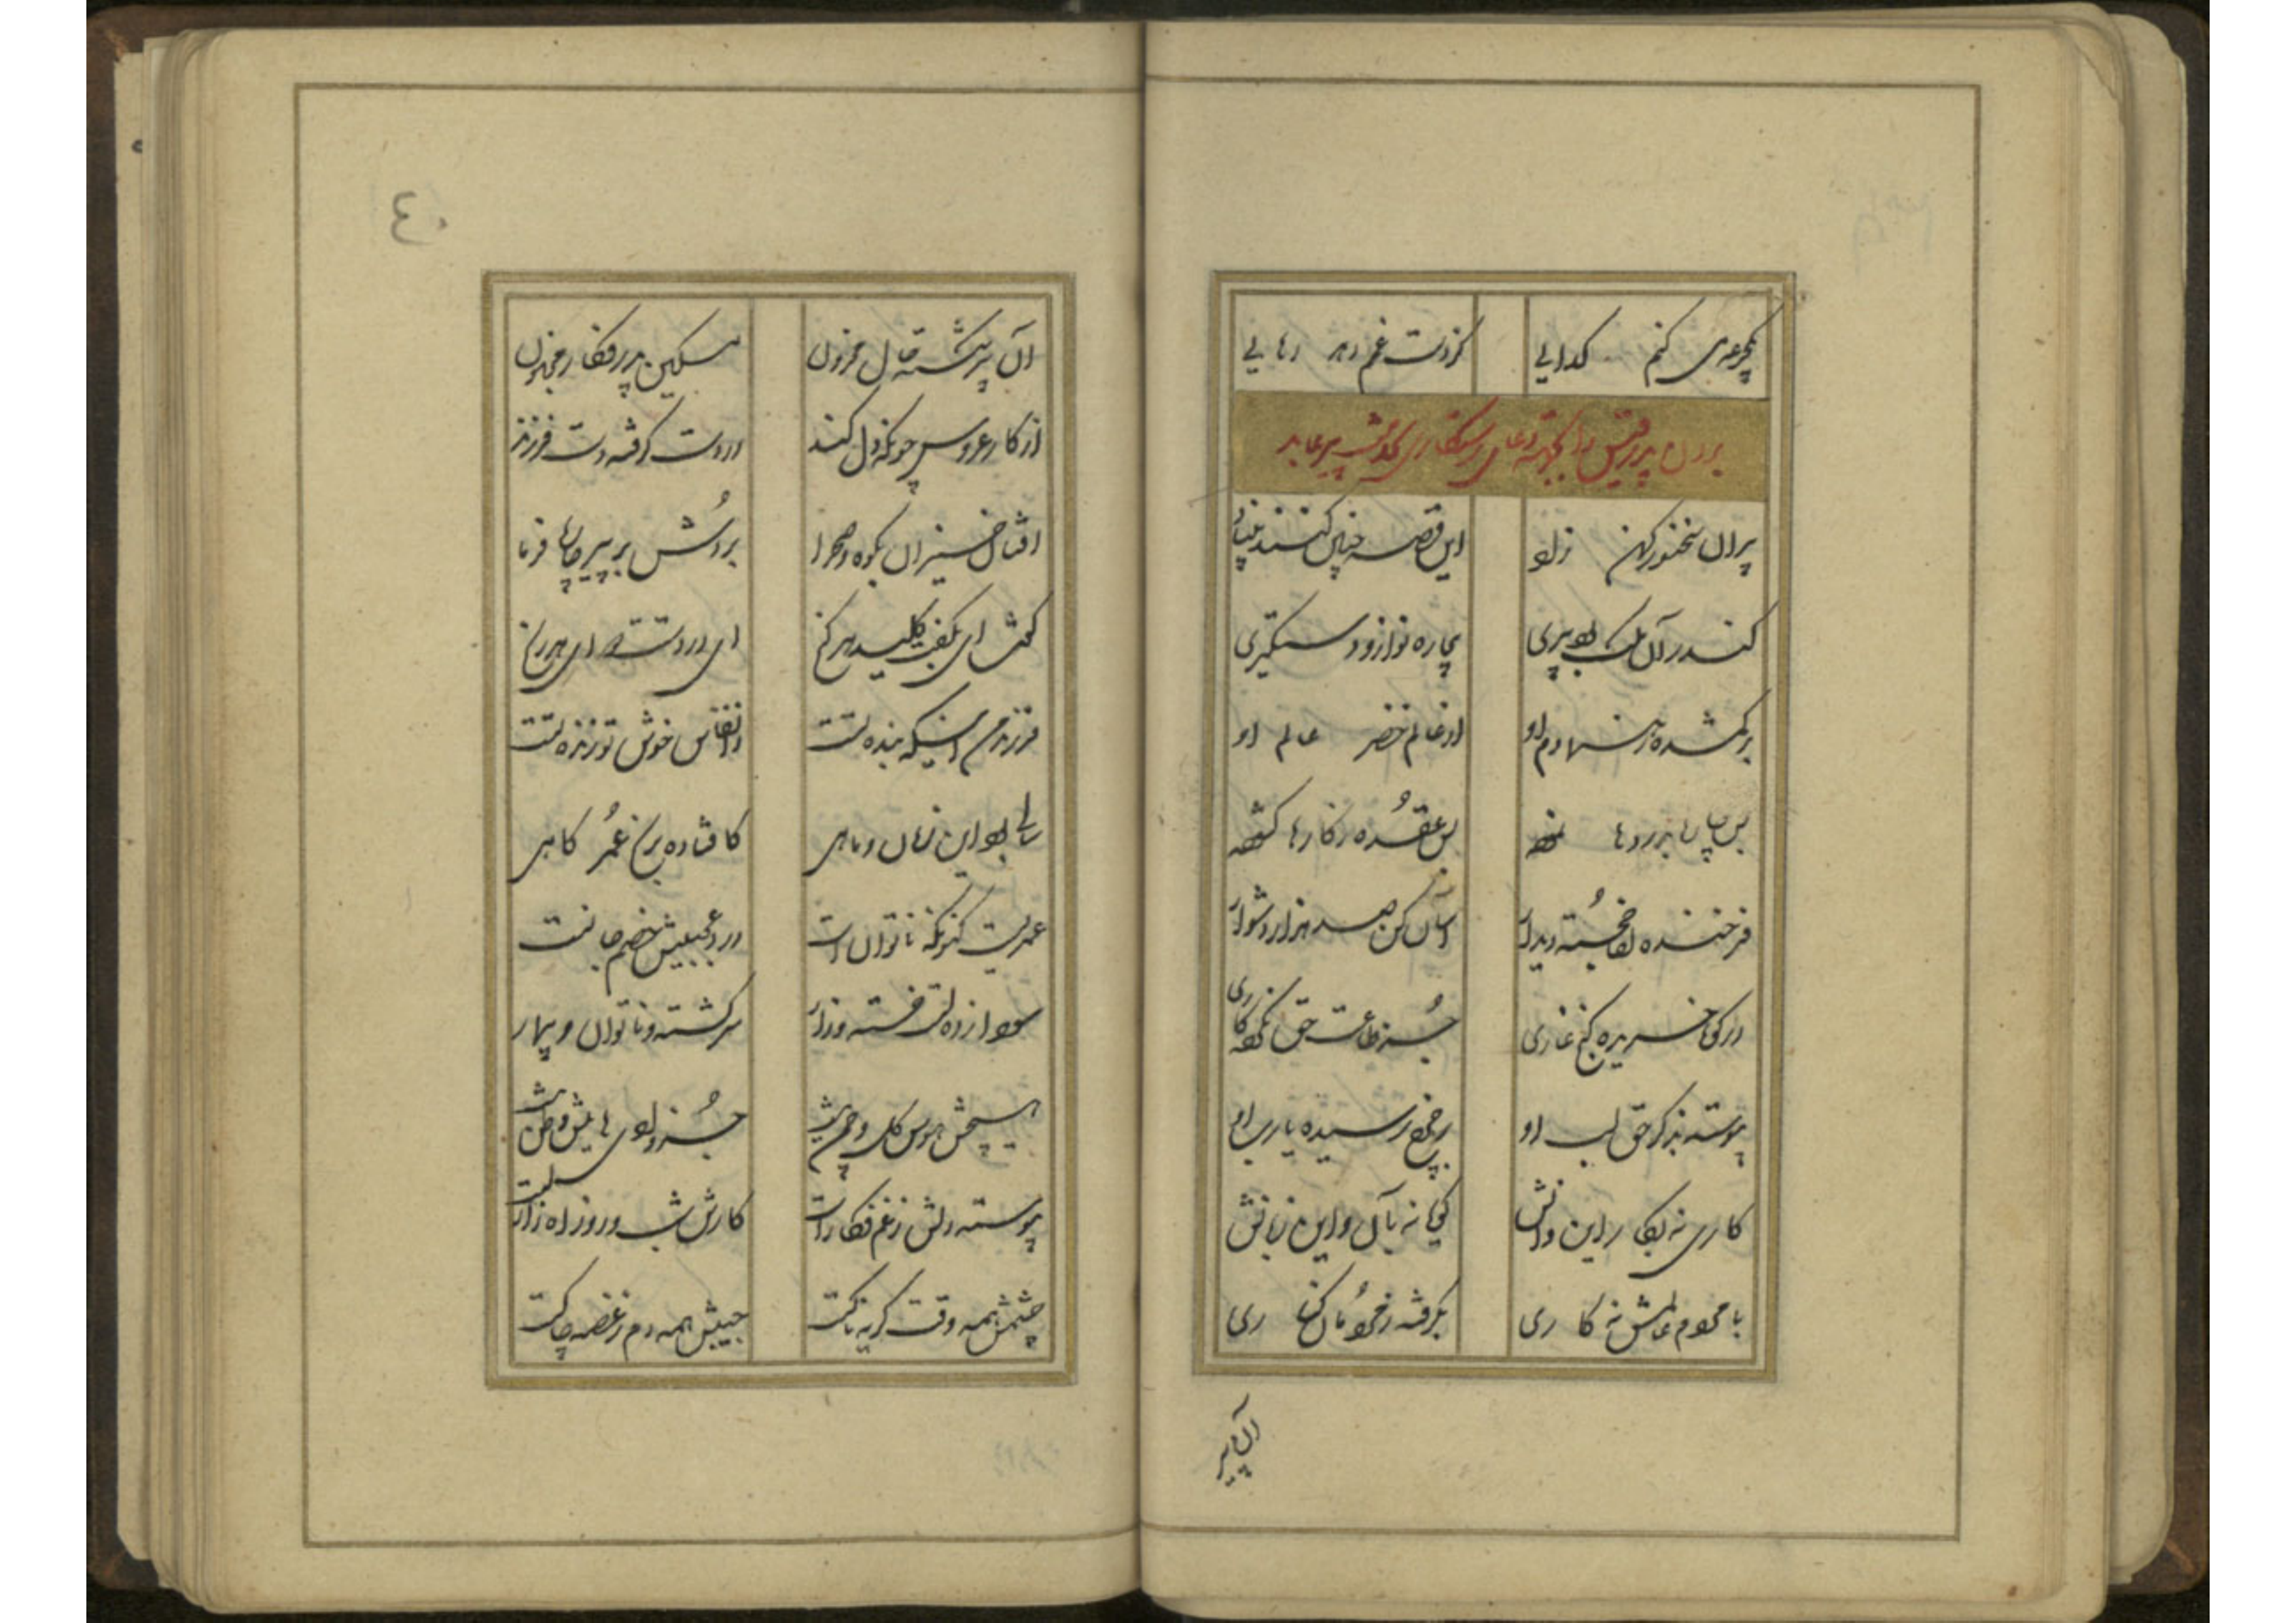 یکجرعه می کنم گدایی
کز دست غم دهد رهایی
بردن پدر قیس را بجهته دعای رستگاری بخدمت پیر عابد
پیر آن سخنور کهن زاد
این قصه چنین کند
کندر آن ملک بود پیری
بیچاره نوازو دستگیری
دم او
از عالم خضر عالم او
بس جان بدردها
بس عقده زکارها گشوده
فرخنده لقا خجسته دیدار
آسان کن صد هزار دشوار
در کوه خزیده کنج غاری
جز طاعت حق نکرده کاری
پیوسته بذکر حق لب او
بر چرخ رسیده یارب او
کاری نه بکار این و آنش
گویا نه بآن و این زبانش
با محرم عالمش نه کاری
بگرفته ز محرمان کناری
آن پیر
٤٠
آن پیر شکسته حال محزون
مسکین پدر فکار مجنون
از کار عروس چونکه دل کند
در دست گرفته دست فرزند
افتان خیزان بکوه و صحرا
بردش بر پیر
گفت ای بکفت کلید هر گنج
ای در دست دوای هر رنج
فرزند من اینکه بنده تست
و انفاس خوش تو زنده تست
سالی بود این زمان و ماهی
کافتاده برنج عمر کاهی
عمریست کنونکه ناتوان است
درد عجبیش خصم جانست
سودا زده ایست خسته و زار
سرگشته و ناتوان و بیمار
هیچش هوس گل و چمن نیست
پیوسته دلش ز غم فکار است
کارش شب و روز آه زار است
چشمش همه وقت گریه ناکست
جیبش همه دم ز غصه چاکست